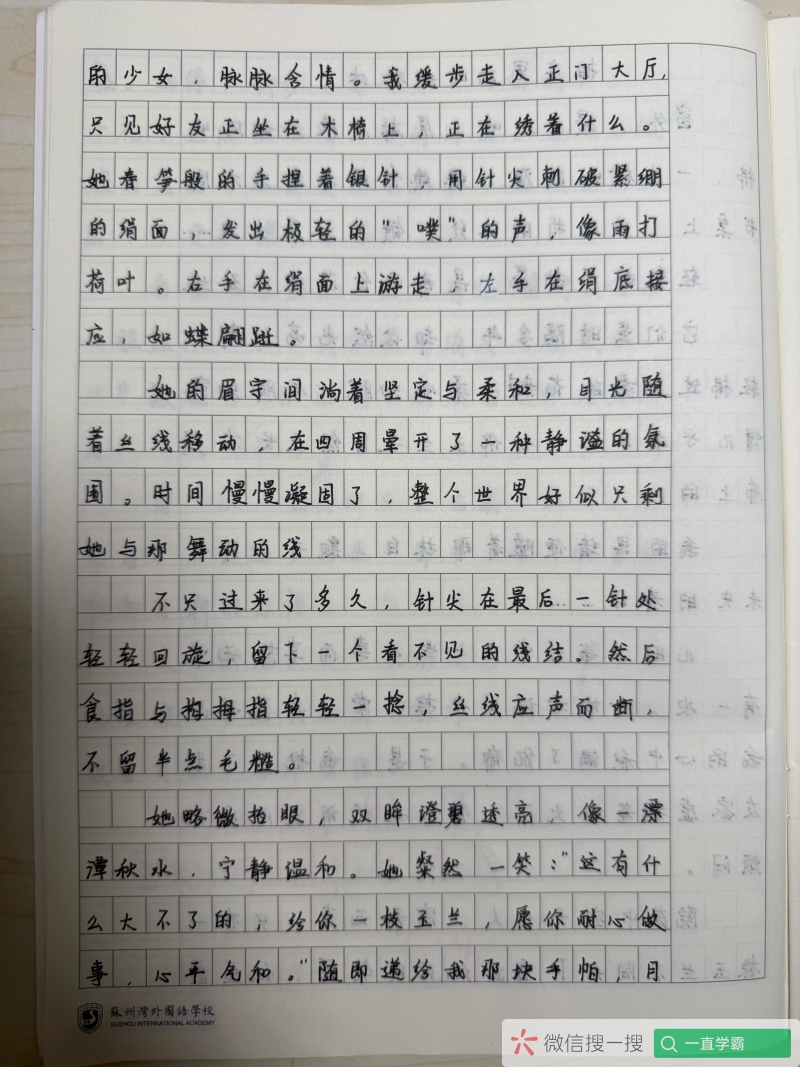 的少女，脉脉含情。我缓步走入正门大厅，
只见好友正坐在木椅上，正在绣着什么。
她春笋般的手捏着银针，用针尖刺破紧绷
的绢面，发出极轻的“噗”的声，像雨打
荷叶。右手在绢面上游走，左手在绢底接
应，如蝶翩跹。
她的眉宇间淌着坚定与柔和，目光随
着丝线移动，在四周晕开了一种静谧的氛
围。时间慢慢凝固了，整个世界好似只剩
她与那舞动的线
不只过来了多久，针尖在最后一针处
轻轻回旋，留下一个看不见的线结。然后
食指与拇指轻轻一捻，丝线应声而断，
不留半点毛糙。
她略微抬眼，双眸澄碧透亮，像一漂
潭秋水，宁静温和。她粲然一笑：“这有什
么大不了的，给你一枝玉兰，愿你耐心做
事，心平气和。”随即递给我那块手帕，月
蘇州灣外國語學校
SUZHOU INTERNATIONAL ACADEMY
微信搜一搜
一直学霸